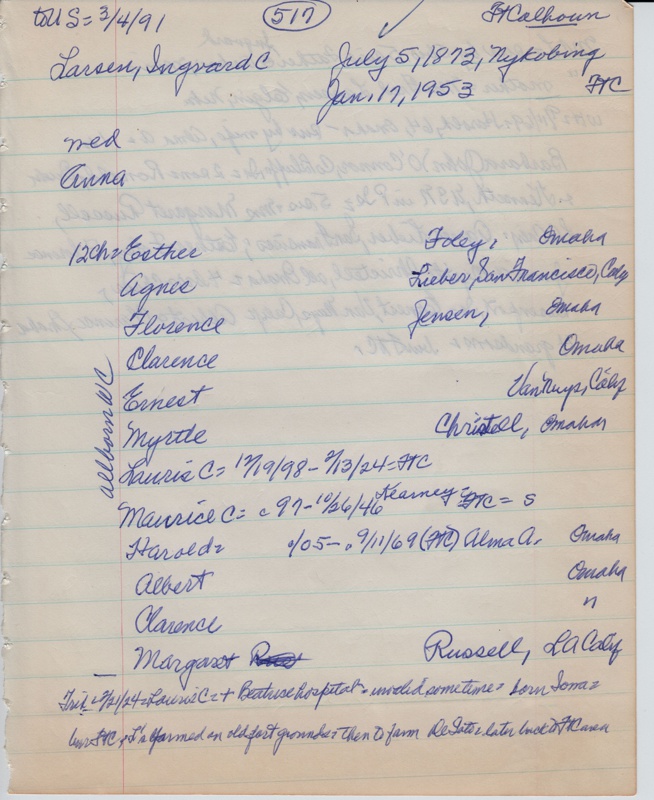 to US = 3/4/91 (517) Ft Calhoun
Larsen, Ingvard C July 5, 1873, Nykobing
Jan. 17, 1953 FtC
med
Anna
12 Ch = Esther Foley, Omaha
Agnes Lieber, San Francisco, Caly
Florence Jensen, Omaha
Clarence Omaha
Ernest Van Nuys, Calif
Myrtle Christell, Omaha
all born WC
Lauris C = 12/19/98 - 2/13/24 = FtC
Maurice C = c 97 - 10/26/46 Kearney = FtC = S
Harold = /05 - 9/11/69 (FtC) Alma A. Omaha
Albert Omaha
Clarence "
Margaret Russell, LA Calif
Trib = 2/21/24 = Lauris C = + Beatrice hospital = invalid sometime = born Ioma =
bur FtC, farmed on old fort grounds = then to farm DeSoto = later back to FtC area